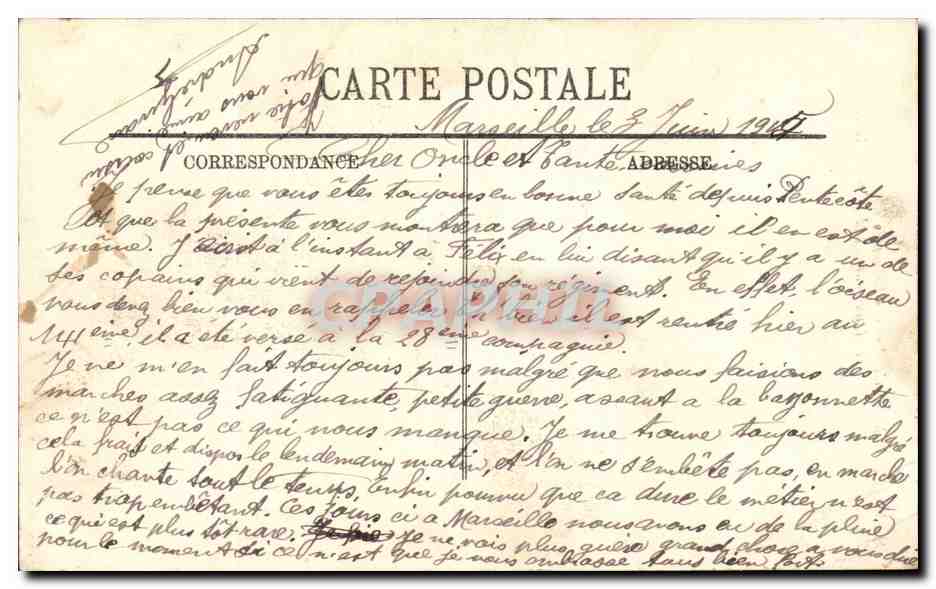 CARTE POSTALE
Marseille le 3 Juin 191
CORRESPONDANCE
ADRESSE
Cher Oncle et Tante
Je pense que vous êtes toujours en bonne santé depuis Pentecôte
et que la présente vous montrera que pour moi il en est de
même. J' à l'instant à Félix en lui disant qu'il y a un de
ses copains qui vient de rejoindre son régiment. En effet, l'oiseau
vous devez bien vous en rappeler il est rentré hier au
141 eme il a été versé a la 28 eme compagnie.
Je ne m'en fait toujours pas malgré que nous faisions des
marches assez fatiguante, petite guerre, assaut a la bayonnette
ce n'est pas ce qui nous manque. Je me trouve toujours malgré
cela frais et dispos le lendemain matin, et l'on ne s'embête pas, en marche
l'on chante tout le temps. Enfin pourvu que ca dure le métier n'est
pas trop embêtant. Ces jours ci a Marseille nous avons eu de la pluie
ce qui est plus tôt rare. Je ne vois plus guère grand chose a vous dire
pour le moment si ce n'est que je vous embrasse tous bien fort.
Votre neveu et cousin
qui vous aime
André
CPAPHIL